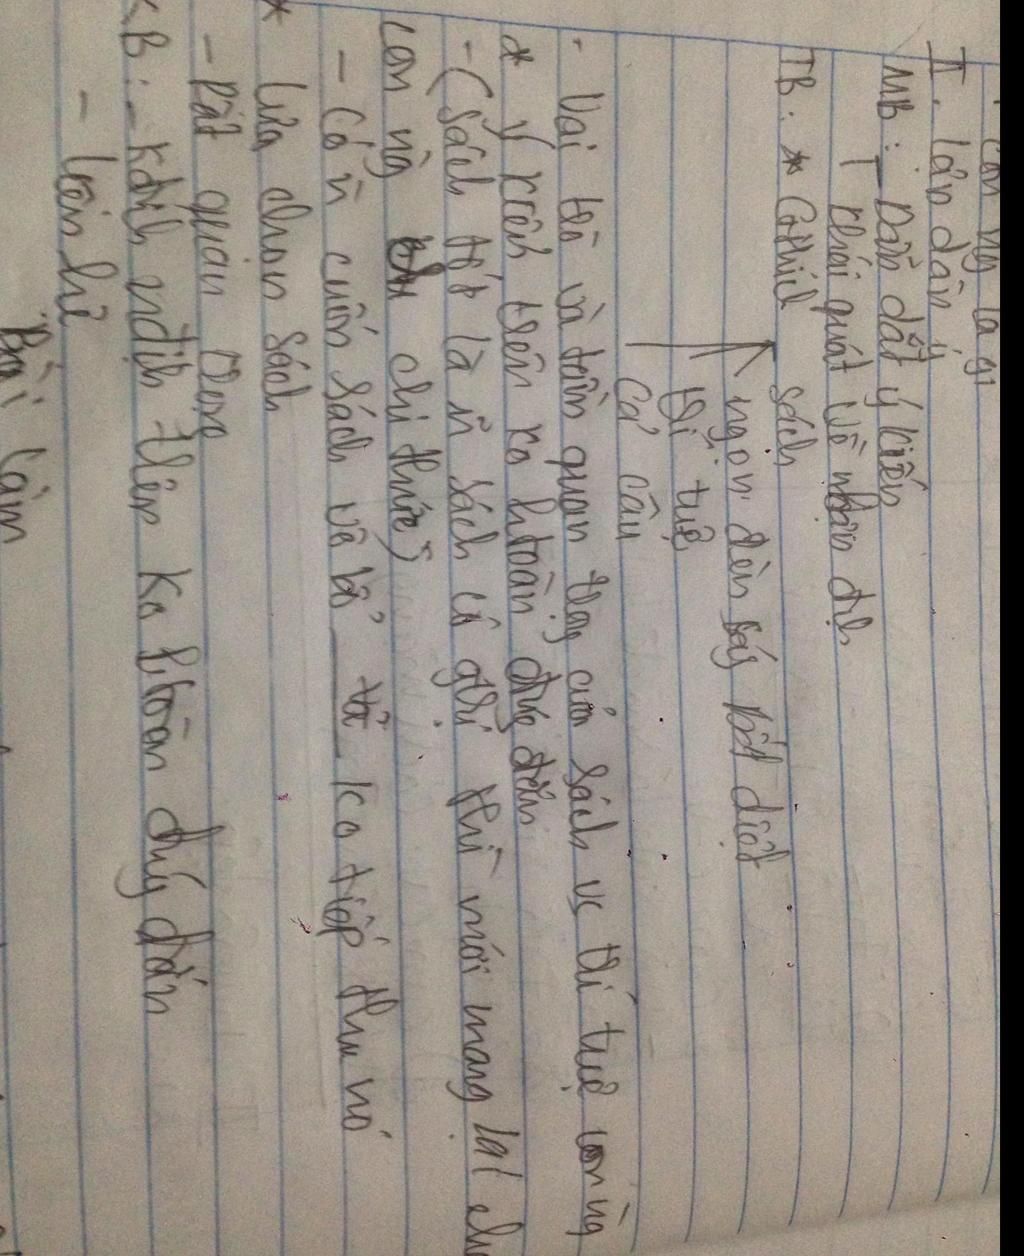 con ng là gì
II. lập dàn ý
MB: - Dẫn dắt ý kiến
- khái quát về nhận định
TB. * Gthích sách
ngọn đèn sáng bất diệt
trí tuệ
cả câu
- Vai trò và tầm quan trọng của sách vs trí tuệ con ng
* Ý kiến trên ko htoàn đúng đắn
- (Sách tốt là n sách có giá trị mới mang lại
con ng chi thức)
- Có n cuốn sách và bổ ko tiếp thu nó
* Lựa chọn sách
- Rất quan trọng
KB: - Kđịnh nđịnh trên ko htoàn đúng đắn
- Liên hệ
Bài làm